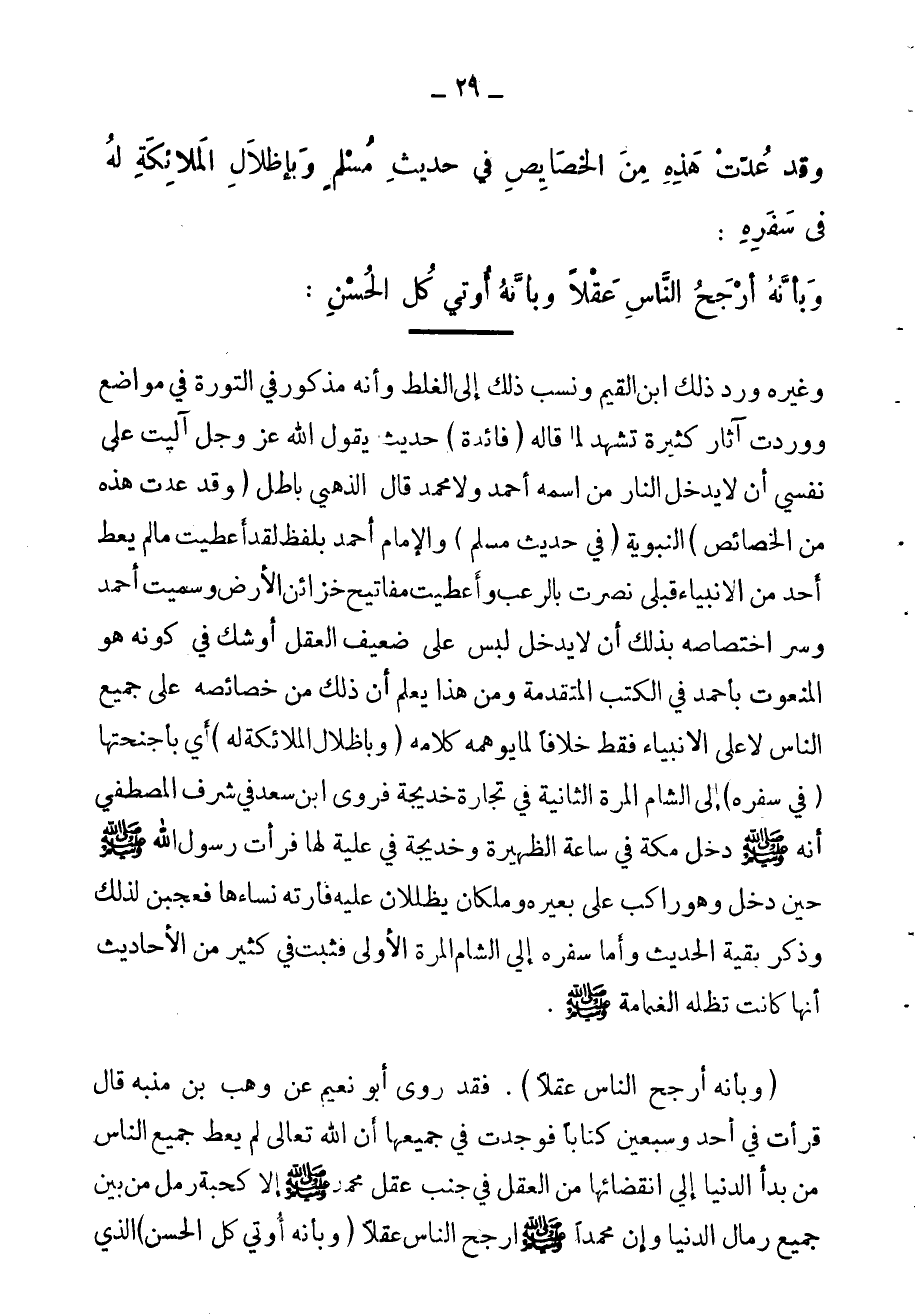 ـ ٢٩ ـ
وقد عُدَتْ هَذِهِ مِنَ الخصَايِصِ في حديثِ مُسْلمٍ وَبإظلاَلِ المَلائِكَةِ لهُ
فى سَفَرِهِ :
وَبأنَّهُ أرْجَحُ النَّاسِ عَقْلاً وبأنَّهُ أُوتي كُل الحُسْنِ :
وغيره ورد ذلك ابن القيم ونسب ذلك إلى الغلط وأنه مذكور في التورة في مواضع
ووردت آثار كثيرة تشهد لما قاله ( فائدة ) حديث يقول الله عز وجل آليت على
نفسي أن لايدخل النار من اسمه أحمد ولا محمد قال الذهبي باطل ( وقد عدت هذه
من الخصائص ) النبوية ( في حديث مسلم ) والإمام أحمد بلفظ لقد أعطيت مالم يعط
أحد من الانبياء قبلى نصرت بالرعب وأعطيت مفاتيح خزائن الأرض وسميت أحمد
وسر اختصاصه بذلك أن لايدخل لبس على ضعيف العقل أوشك في كونه هو
المنعوت بأحمد في الكتب المتقدمة ومن هذا يعلم أن ذلك من خصائصه على جميع
الناس لاعلى الانبياء فقط خلافاً لمايوهمه كلامه ( وباظلال الملائكة له ) أي بأجنحتها
( في سفره ) إلى الشام المرة الثانية في تجارة خديجة فروى ابن سعد في شرف المصطفي
أنه ﷺ دخل مكة في ساعة الظهيرة وخديجة في علية لها فرأت رسول الله ﷺ
حين دخل وهو راكب على بعيره وملكان يظللان عليه فأرته نساءها فعجبن لذلك
وذكر بقية الحديث وأما سفره إلى الشام المرة الأولى فثبت في كثير من الأحاديث
أنها كانت تظله الغمامة ﷺ .
( وبأنه أرجح الناس عقلاً ) . فقد روى أبو نعيم عن وهب بن منبه قال
قرأت في أحد وسبعين كتاباً فوجدت في جميعها أن الله تعالى لم يعط جميع الناس
من بدأ الدنيا إلي انقضائها من العقل في جنب عقل محمد ﷺ إلا كحبة رمل من بين
جميع رمال الدنيا وإن محمداً ﷺ ارجح الناس عقلاً ( وبأنه أُوتي كل الحسن ) الذي